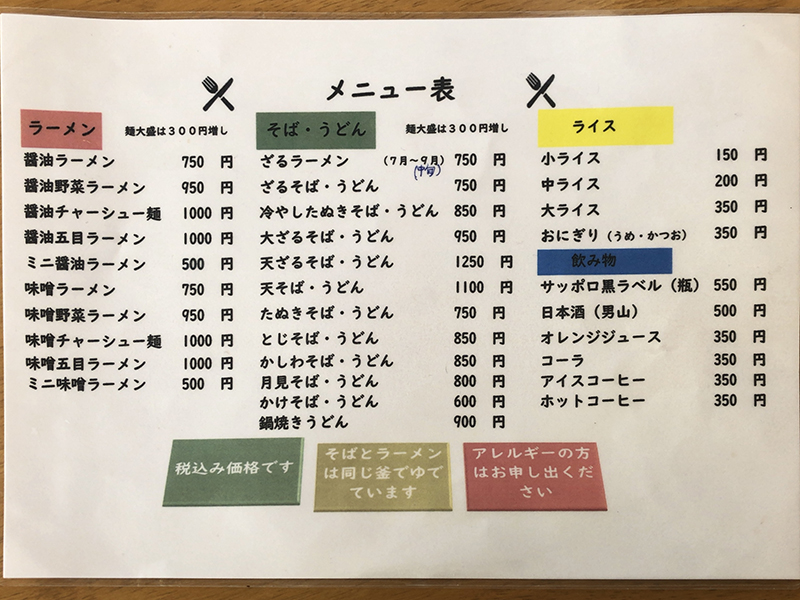 メニュー表
ラーメン 麺大盛は300円増し
醤油ラーメン 750 円
醤油野菜ラーメン 950 円
醤油チャーシュー麺 1000 円
醤油五目ラーメン 1000 円
ミニ醤油ラーメン 500 円
味噌ラーメン 750 円
味噌野菜ラーメン 950 円
味噌チャーシュー麺 1000 円
味噌五目ラーメン 1000 円
ミニ味噌ラーメン 500 円
そば・うどん 麺大盛は300円増し
ざるラーメン (7月～9月) 750 円
(中旬)
ざるそば・うどん 750 円
冷やしたぬきそば・うどん 850 円
大ざるそば・うどん 950 円
天ざるそば・うどん 1250 円
天そば・うどん 1100 円
たぬきそば・うどん 750 円
とじそば・うどん 850 円
かしわそば・うどん 850 円
月見そば・うどん 800 円
かけそば・うどん 600 円
鍋焼きうどん 900 円
ライス
小ライス 150 円
中ライス 200 円
大ライス 350 円
おにぎり(うめ・かつお) 350 円
飲み物
サッポロ黒ラベル(瓶) 550 円
日本酒(男山) 500 円
オレンジジュース 350 円
コーラ 350 円
アイスコーヒー 350 円
ホットコーヒー 350 円
税込み価格です
そばとラーメン
は同じ釜でゆで
ています
アレルギーの方
はお申し出くだ
さい